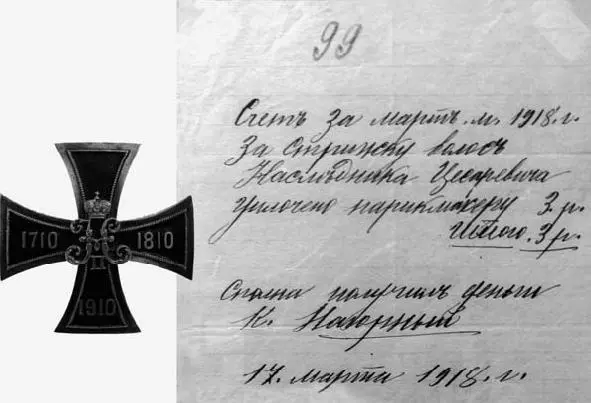 1710 1810
1910
99
Счетъ За мартъ. м. 1918. г.
За Стрижку волосъ
Наслѣдника Цесаревича
уплочено парикмахеру 3. р.
Итого. 3 р.
Сполна получилъ деньги
К. Нагорный
17. марта 1918. г.